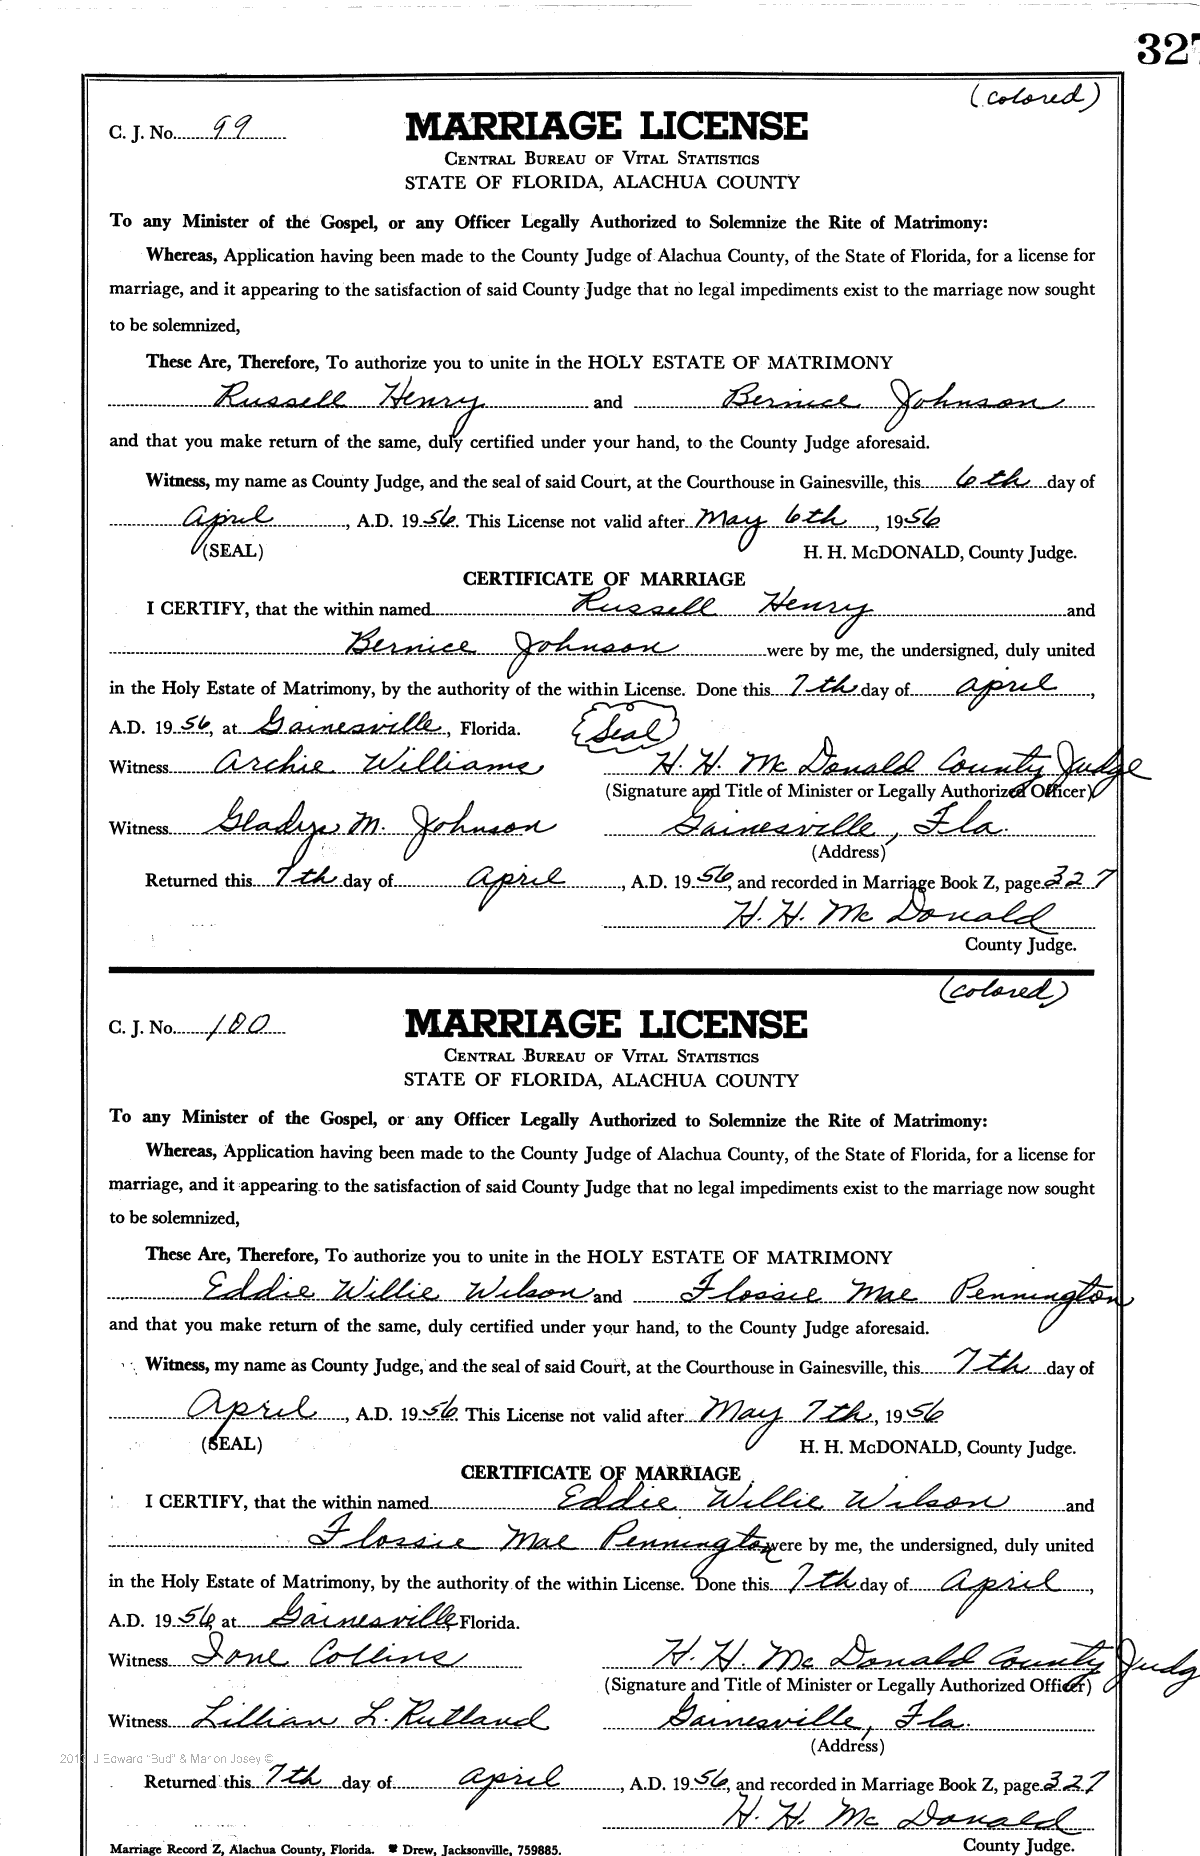 327
(colored)
C. J. No. 99 MARRIAGE LICENSE
CENTRAL BUREAU OF VITAL STATISTICS
STATE OF FLORIDA, ALACHUA COUNTY
To any Minister of the Gospel, or any Officer Legally Authorized to Solemnize the Rite of Matrimony:
Whereas, Application having been made to the County Judge of Alachua County, of the State of Florida, for a license for
marriage, and it appearing to the satisfaction of said County Judge that no legal impediments exist to the marriage now sought
to be solemnized,
These Are, Therefore, To authorize you to unite in the HOLY ESTATE OF MATRIMONY
Russell Henry and Bernice Johnson
and that you make return of the same, duly certified under your hand, to the County Judge aforesaid.
Witness, my name as County Judge, and the seal of said Court, at the Courthouse in Gainesville, this 6th day of
April, A.D. 1956. This License not valid after May 6th, 1956
(SEAL) H. H. McDONALD, County Judge.
CERTIFICATE OF MARRIAGE
I CERTIFY, that the within named Russell Henry and
Bernice Johnson were by me, the undersigned, duly united
in the Holy Estate of Matrimony, by the authority of the within License. Done this 7th day of April,
A.D. 1956, at Gainesville, Florida. Seal
Witness Archie Williams H. H. McDonald County Judge
(Signature and Title of Minister or Legally Authorized Officer)
Witness Gladys M. Johnson Gainesville, Fla.
(Address)
Returned this 7th day of April, A.D. 1956, and recorded in Marriage Book Z, page 327
H. H. McDonald
County Judge.
(colored)
C. J. No. 100 MARRIAGE LICENSE
CENTRAL BUREAU OF VITAL STATISTICS
STATE OF FLORIDA, ALACHUA COUNTY
To any Minister of the Gospel, or any Officer Legally Authorized to Solemnize the Rite of Matrimony:
Whereas, Application having been made to the County Judge of Alachua County, of the State of Florida, for a license for
marriage, and it appearing to the satisfaction of said County Judge that no legal impediments exist to the marriage now sought
to be solemnized,
These Are, Therefore, To authorize you to unite in the HOLY ESTATE OF MATRIMONY
Eddie Willie Wilson and Flossie Mae Pennington
and that you make return of the same, duly certified under your hand, to the County Judge aforesaid.
Witness, my name as County Judge, and the seal of said Court, at the Courthouse in Gainesville, this 7th day of
April, A.D. 1956. This License not valid after May 7th, 1956
(SEAL) H. H. McDONALD, County Judge.
CERTIFICATE OF MARRIAGE
I CERTIFY, that the within named Eddie Willie Wilson and
Flossie Mae Pennington were by me, the undersigned, duly united
in the Holy Estate of Matrimony, by the authority of the within License. Done this 7th day of April,
A.D. 1956, at Gainesville, Florida.
Witness Ione Collins H. H. McDonald County Judg
(Signature and Title of Minister or Legally Authorized Officer)
Witness Lillian L. Rutland Gainesville, Fla.
(Address)
J Edward "Bud" & Marion Josey ©
Returned this 7th day of April, A.D. 1956, and recorded in Marriage Book Z, page 327
H. H. McDonald
County Judge.
Marriage Record Z, Alachua County, Florida. Drew, Jacksonville, 759885.